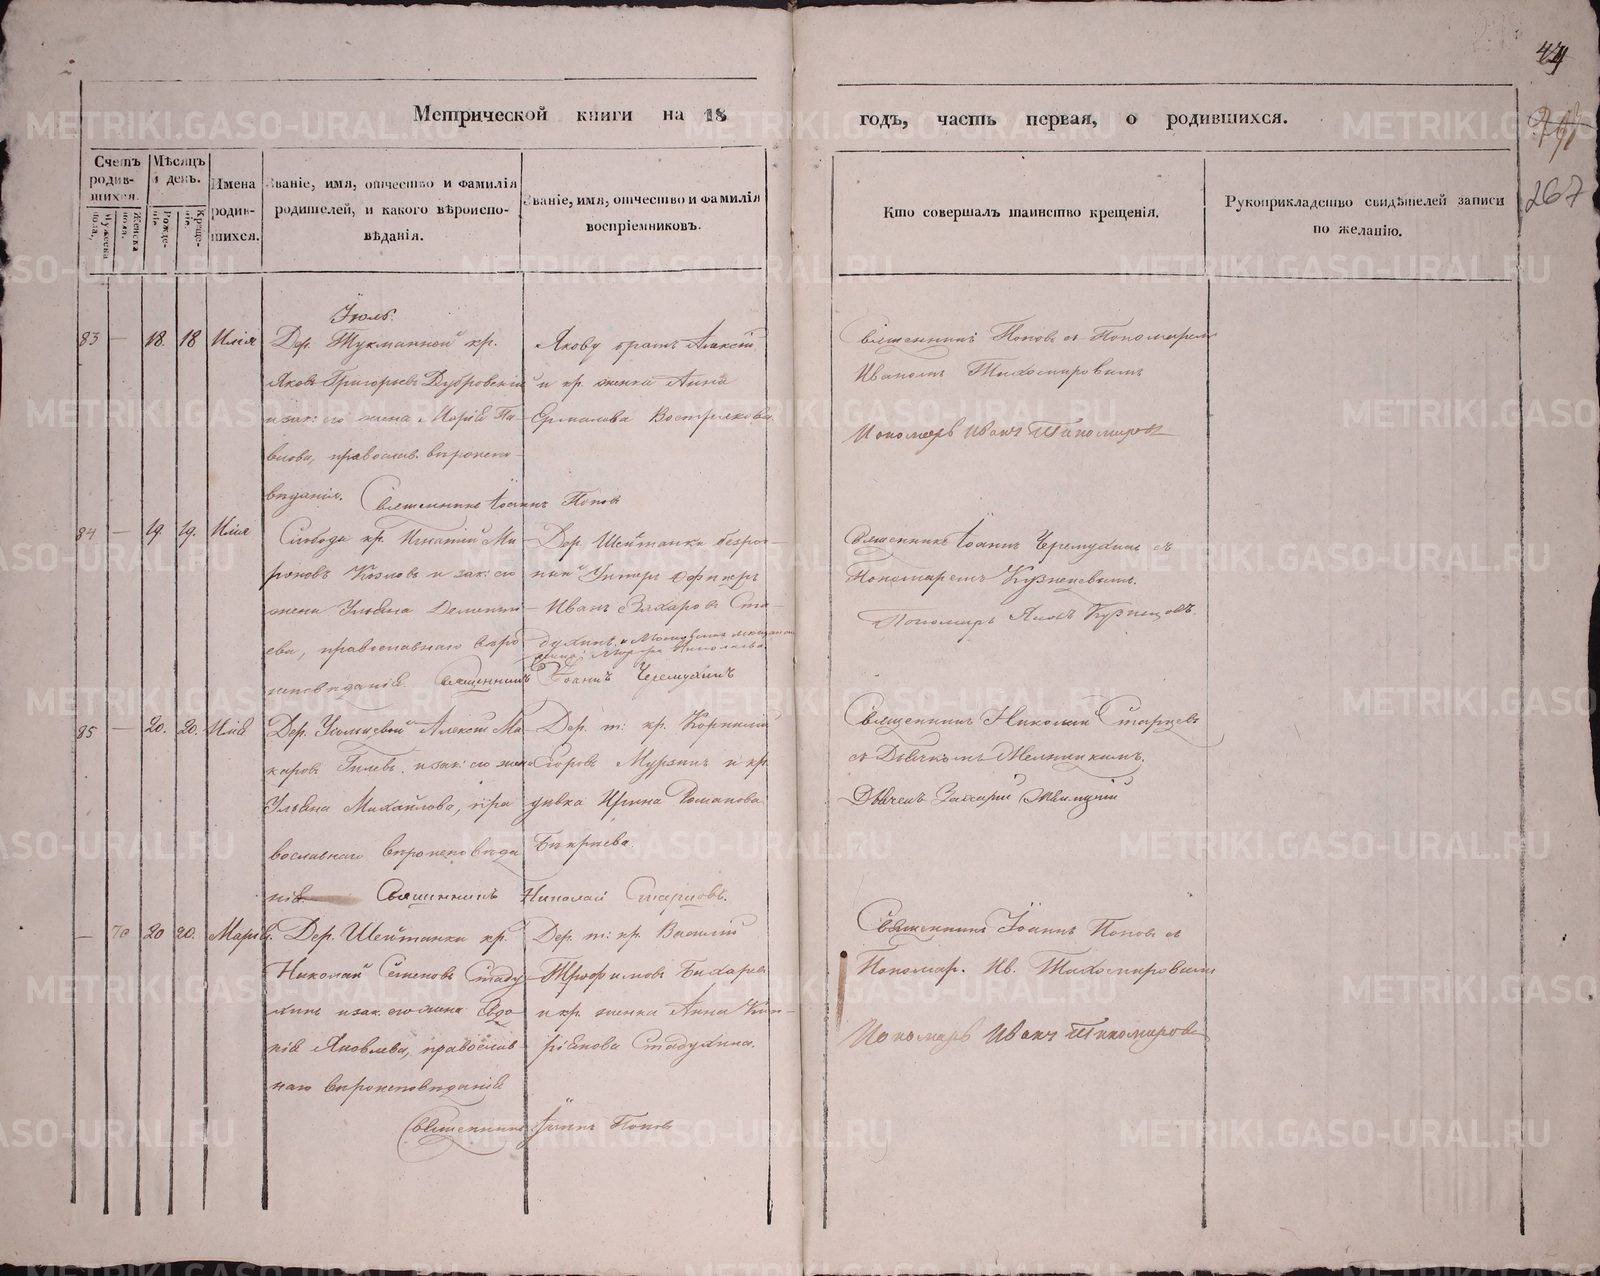 44
267
Метрической книги на 18
годъ, часть первая, о родившихся.
Счетъ родившихся.
Мужеска пола.
Женска пола.
Мѣсяцъ и день.
Рожденія.
Крещенія.
Имена родившихся.
Званіе, имя, отчество и фамилія
родителей, и какого вѣроиспо-
вѣданія.
Званіе, имя, отчество и фамилія
воспріемниковъ.
Кто совершалъ таинство крещенія.
Рукоприкладство свидѣтелей записи
по желанію.
Іюль.
83 — 18. 18 Илія
Дер. Тукманной кр.
Яковъ Григорьевъ Дубровскій
и зак: его жена Марія Па-
влова, православ. вѣроиспо-
вѣданія.
Священникъ Іоаннъ Поповъ
Якову братъ Алексій
и кр. женка Анна
Ермолова Вострякова
Священникъ Поповъ съ Пономарем
Иваномъ Тихомировымъ
Пономарь Иванъ Тихомиров
84 — 19. 19. Илія
Слободы кр. Игнатій Ми-
роновъ Козловъ и зак: его
жена Ульяна Дементи-
ева, православнаго вѣро
исповѣданія. Священникъ Іоаннъ Черемухинъ
Дер. Шейтанки
Унтеръ Офицеръ
Иванъ Захаровъ Ста-
духинъ и
Священникъ Іоаннъ Черемухинъ съ
Пономаремъ Кузнецовымъ.
Пономарь Яковъ Кузнецовъ
85 — 20. 20. Илія
Дер. Усольцевой Алексѣй Ма-
каровъ Гилевъ и зак: его жена
Ульяна Михайлова, пра
вославнаго вѣроисповѣда
нія. Священникъ Николай Старцовъ.
Дер. т: кр. Корнилий
Егоровъ Мурзинъ и кр.
дѣвка Ирина Романова
Священникъ Николай Старцевъ
съ Дьячкомъ
Дьячекъ Захарій
— 70 20 20. Марія.
Дер. Шейтанки кр.
Николай Семеновъ Стаду-
хинъ и зак. его жена Евдо-
кія Яковлева, православ-
наго вѣроисповѣданія
Священникъ Іоаннъ Поповъ
Дер. т: кр. Василій
Трофимовъ Бихаревъ
и кр. женка Анна Кип-
ріянова Стадухина.
Священникъ Іоаннъ Поповъ съ
Пономар. Ив. Тихомировымъ
Пономарь Иванъ Тихомировъ
METRIKI.GASO-URAL.RU